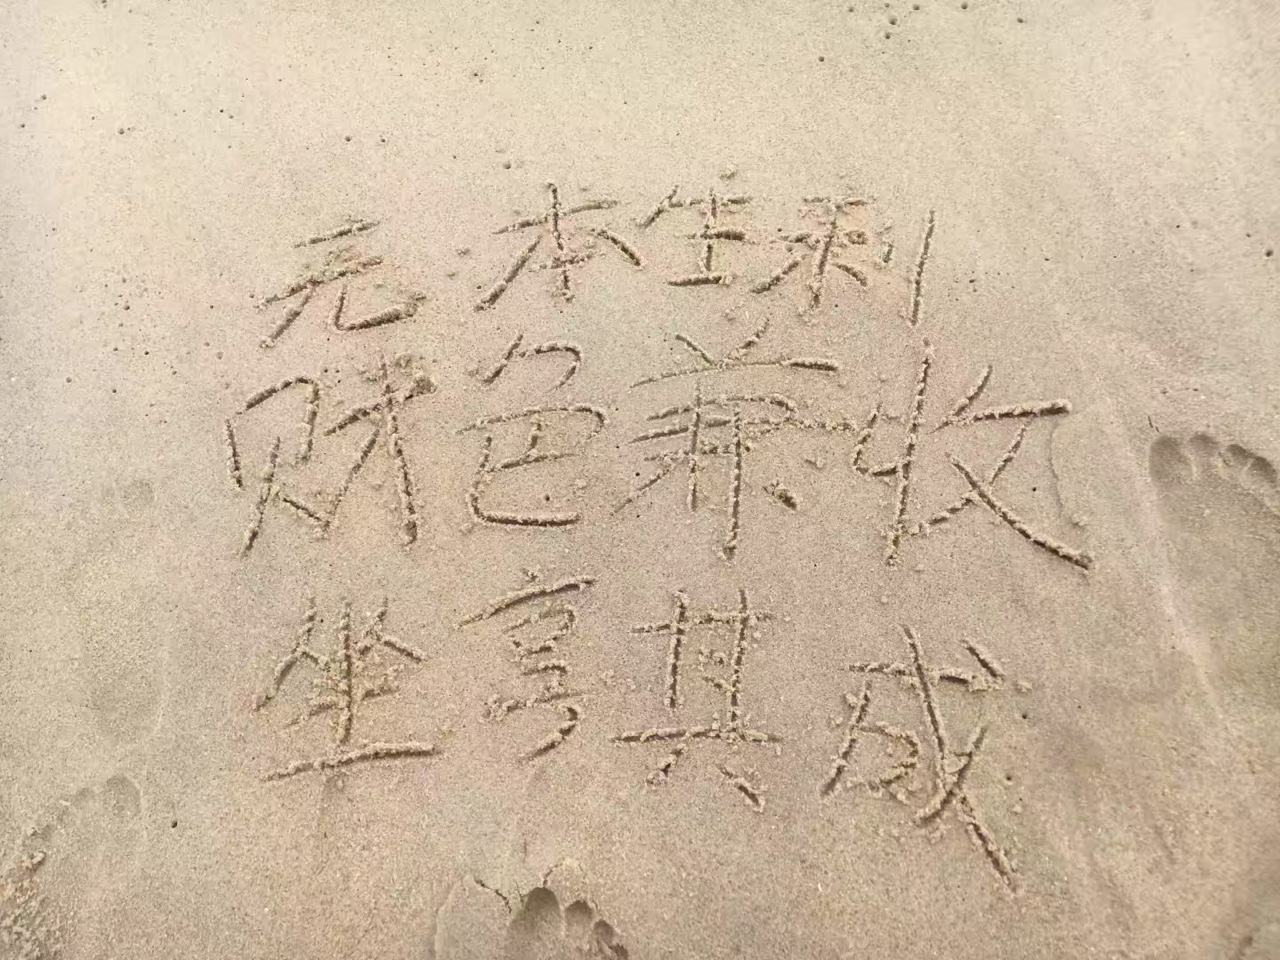 无本生利
财色兼收
坐享其成